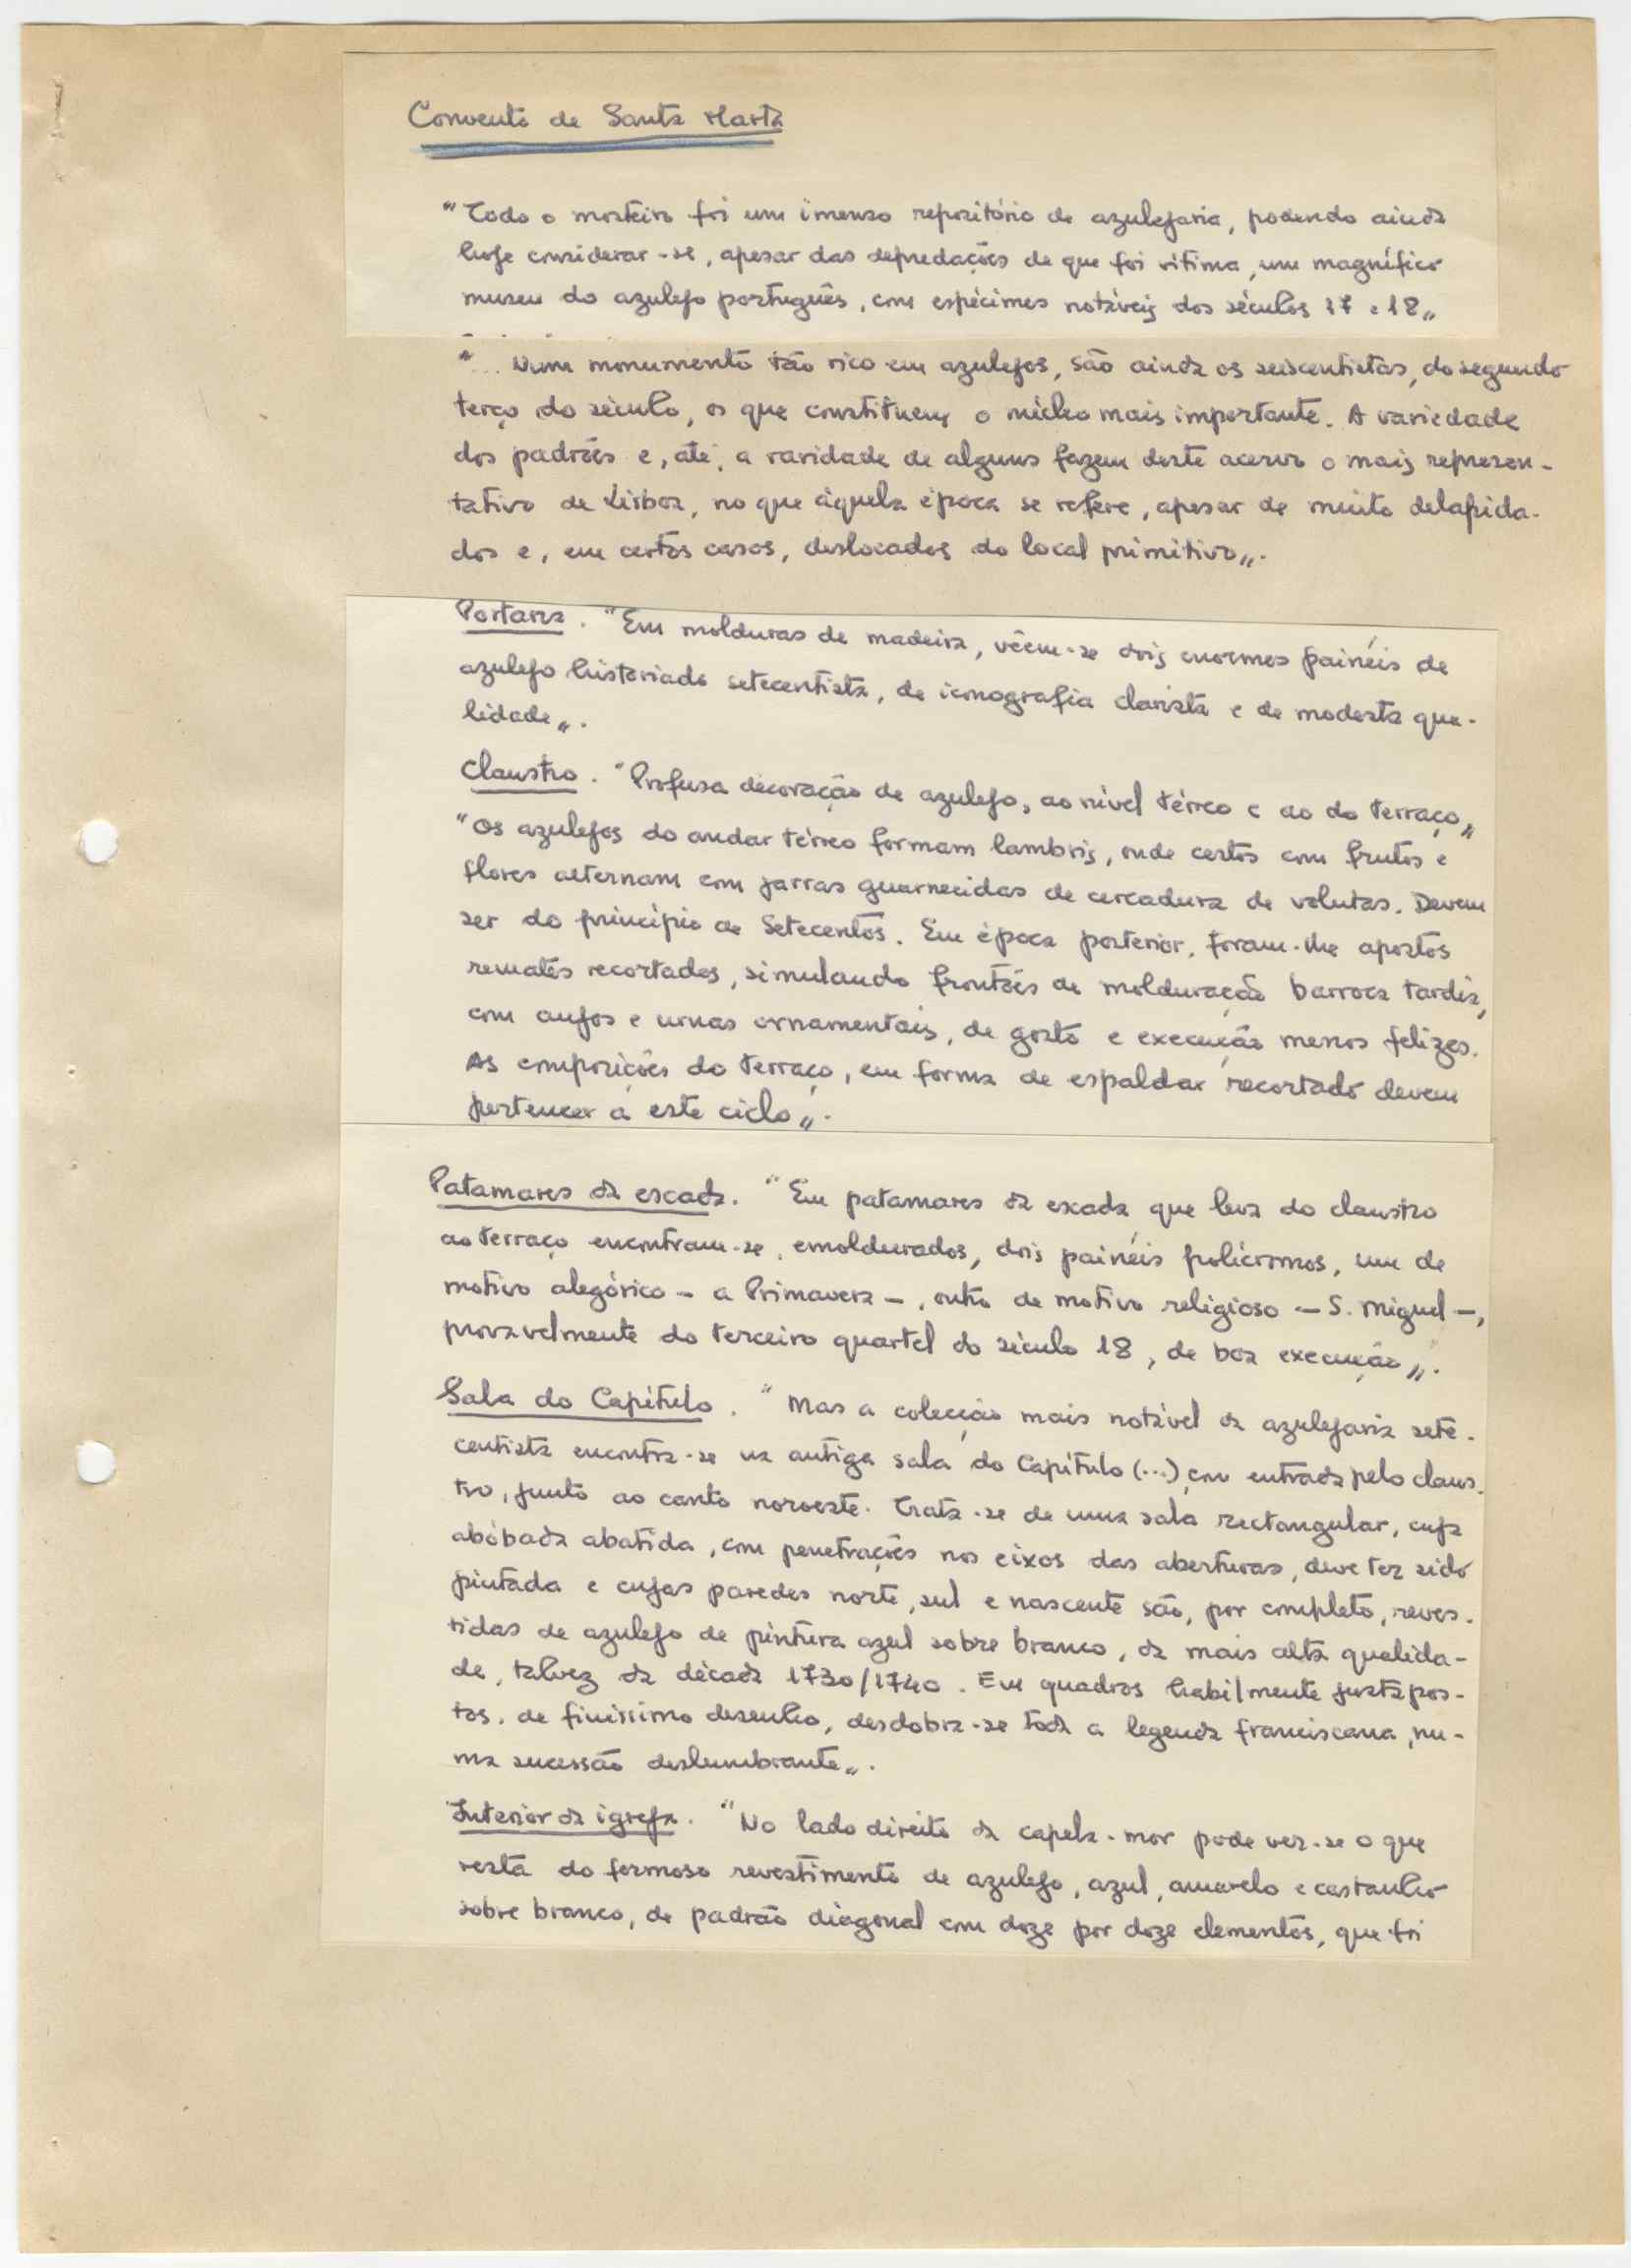 Convento de Santa Marta
"Todo o mosteiro foi um imenso repositório de azulejaria, podendo ainda
hoje considerar-se, apesar das depredações de que foi vítima, um magnífico
museu do azulejo português, com espécimes notáveis dos séculos 17 e 18„
"... Num monumento tão rico em azulejos, são ainda os seiscentistas, do segundo
terço do século, os que constituem o núcleo mais importante. A variedade
dos padrões e, até, a raridade de alguns fazem deste acervo o mais represen-
tativo de Lisboa, no que àquela época se refere, apesar de muito delapida-
dos e, em certos casos, deslocados do local primitivo„.
Portaria. "Em molduras de madeira, vêem-se dois enormes painéis de
azulejo historiado setecentista, de iconografia clarista e de modesta qua-
lidade„.
Claustro. "Profusa decoração de azulejo, ao nível térreo e ao do terraço„
"Os azulejos do andar térreo formam lambris, onde cestos com frutos e
flores alternam com jarras guarnecidas de cercadura de volutas. Devem
ser do princípio de Setecentos. Em época posterior, foram-lhe apostos
remates recortados, simulando frontões de molduração barroca tardia,
com anjos e urnas ornamentais, de gosto e execução menos felizes.
As composições do terraço, em forma de espaldar recortado devem
pertencer a este ciclo„.
Patamares da escada. "Em patamares da escada que leva do claustro
ao terraço encontram-se, emoldurados, dois painéis polícromos, um de
motivo alegórico - a Primavera -, outro de motivo religioso - S. Miguel -,
provavelmente do terceiro quartel do século 18, de boa execução„.
Sala do Capítulo. "Mas a colecção mais notável da azulejaria sete-
centista encontra-se na antiga sala do Capítulo (...) com entrada pelo claus-
tro, junto ao canto noroeste. Trata-se de uma sala rectangular, cuja
abóbada abatida, com penetrações nos eixos das aberturas, deve ter sido
pintada e cujas paredes norte, sul e nascente são, por completo, reves-
tidas de azulejo de pintura azul sobre branco, da mais alta qualida-
de, talvez da década 1730/1740. Em quadros habilmente justapos-
tos, de finíssimo desenho, desdobra-se toda a legenda franciscana, nu-
ma sucessão deslumbrante„.
Interior da igreja. "No lado direito da capela-mor pode ver-se o que
resta do formoso revestimento de azulejo, azul, amarelo e castanho
sobre branco, de padrão diagonal com doze por doze elementos, que foi